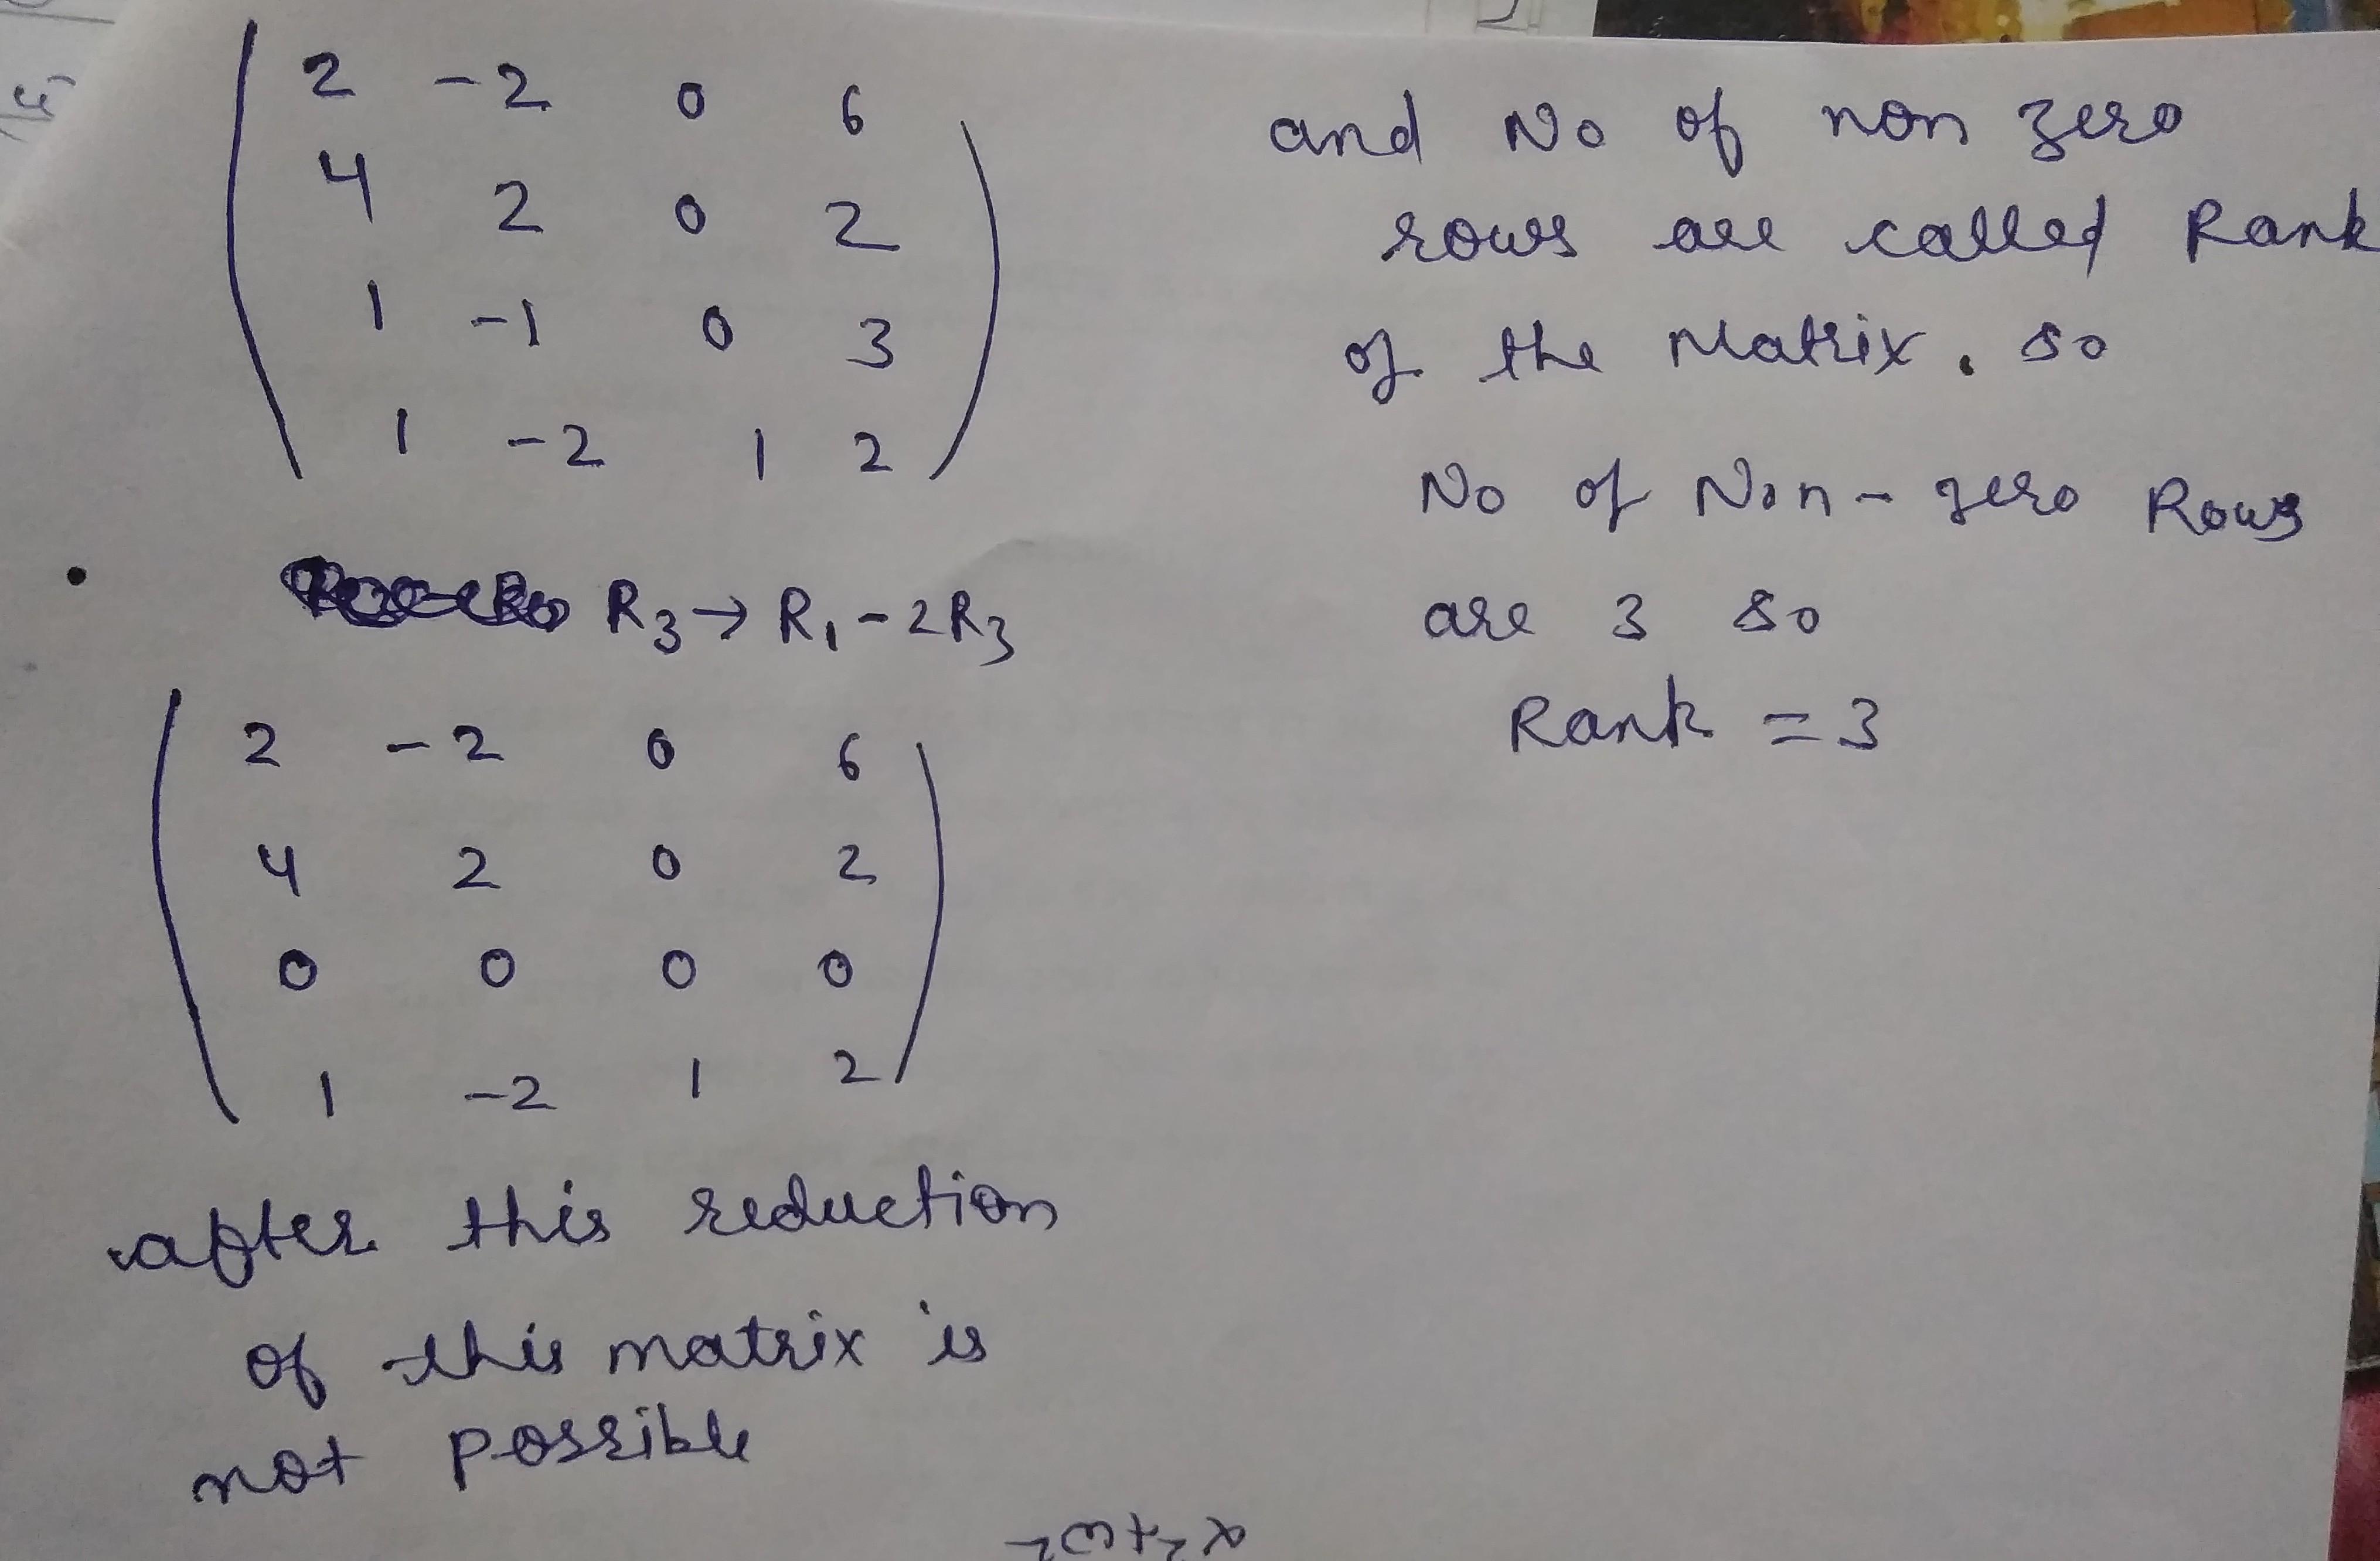 2 -2 0 6
4 2 0 2
1 -1 0 3
1 -2 1 2
R3 → R1 - 2R3
2 -2 0 6
4 2 0 2
0 0 0 0
1 -2 1 2
after this reduction
of this matrix is
not possible
and No of non zero
rows are called Rank
of the Matrix. so
No of Non-zero Rows
are 3 so
Rank = 3